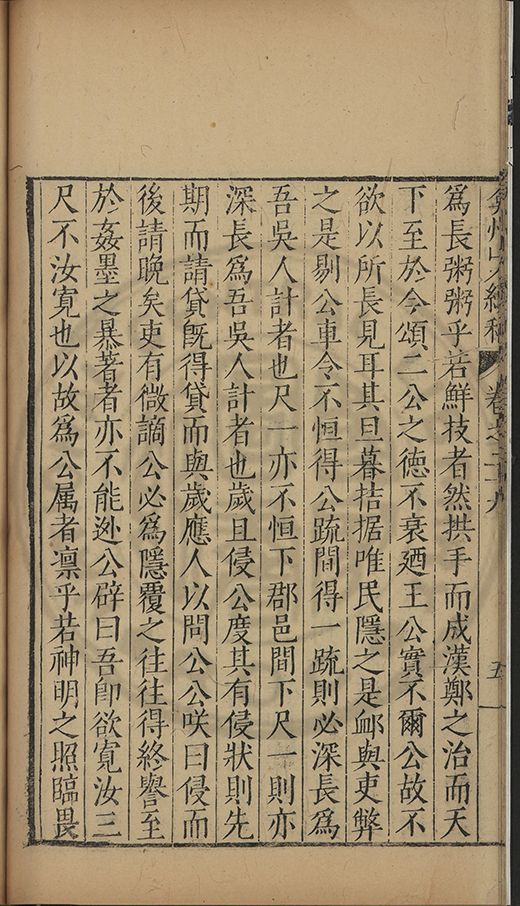 弇州　　續稿　卷之二十九　五
爲長粥粥乎若鮮技者然拱手而成漢鄭之治而天
下至於今頌二公之德不衰廼王公實不爾公故不
欲以所長見耳其旦暮拮据唯民隱之是䘏與吏弊
之是剔公車令不恒得公䟽間得一䟽則必深長爲
吾吳人計者也尺一亦不恒下郡邑間下尺一則亦
深長爲吾吳人計者也歲且侵公度其有侵狀則先
期而請貸旣得貸而與歲應人以問公公咲曰侵而
後請晚矣吏有微謫公必爲隱覆之往往得終譽至
於姦墨之暴著者亦不能迯公辟曰吾卽欲寛汝三
尺不汝寛也以故爲公属者凛乎若神明之照臨畏